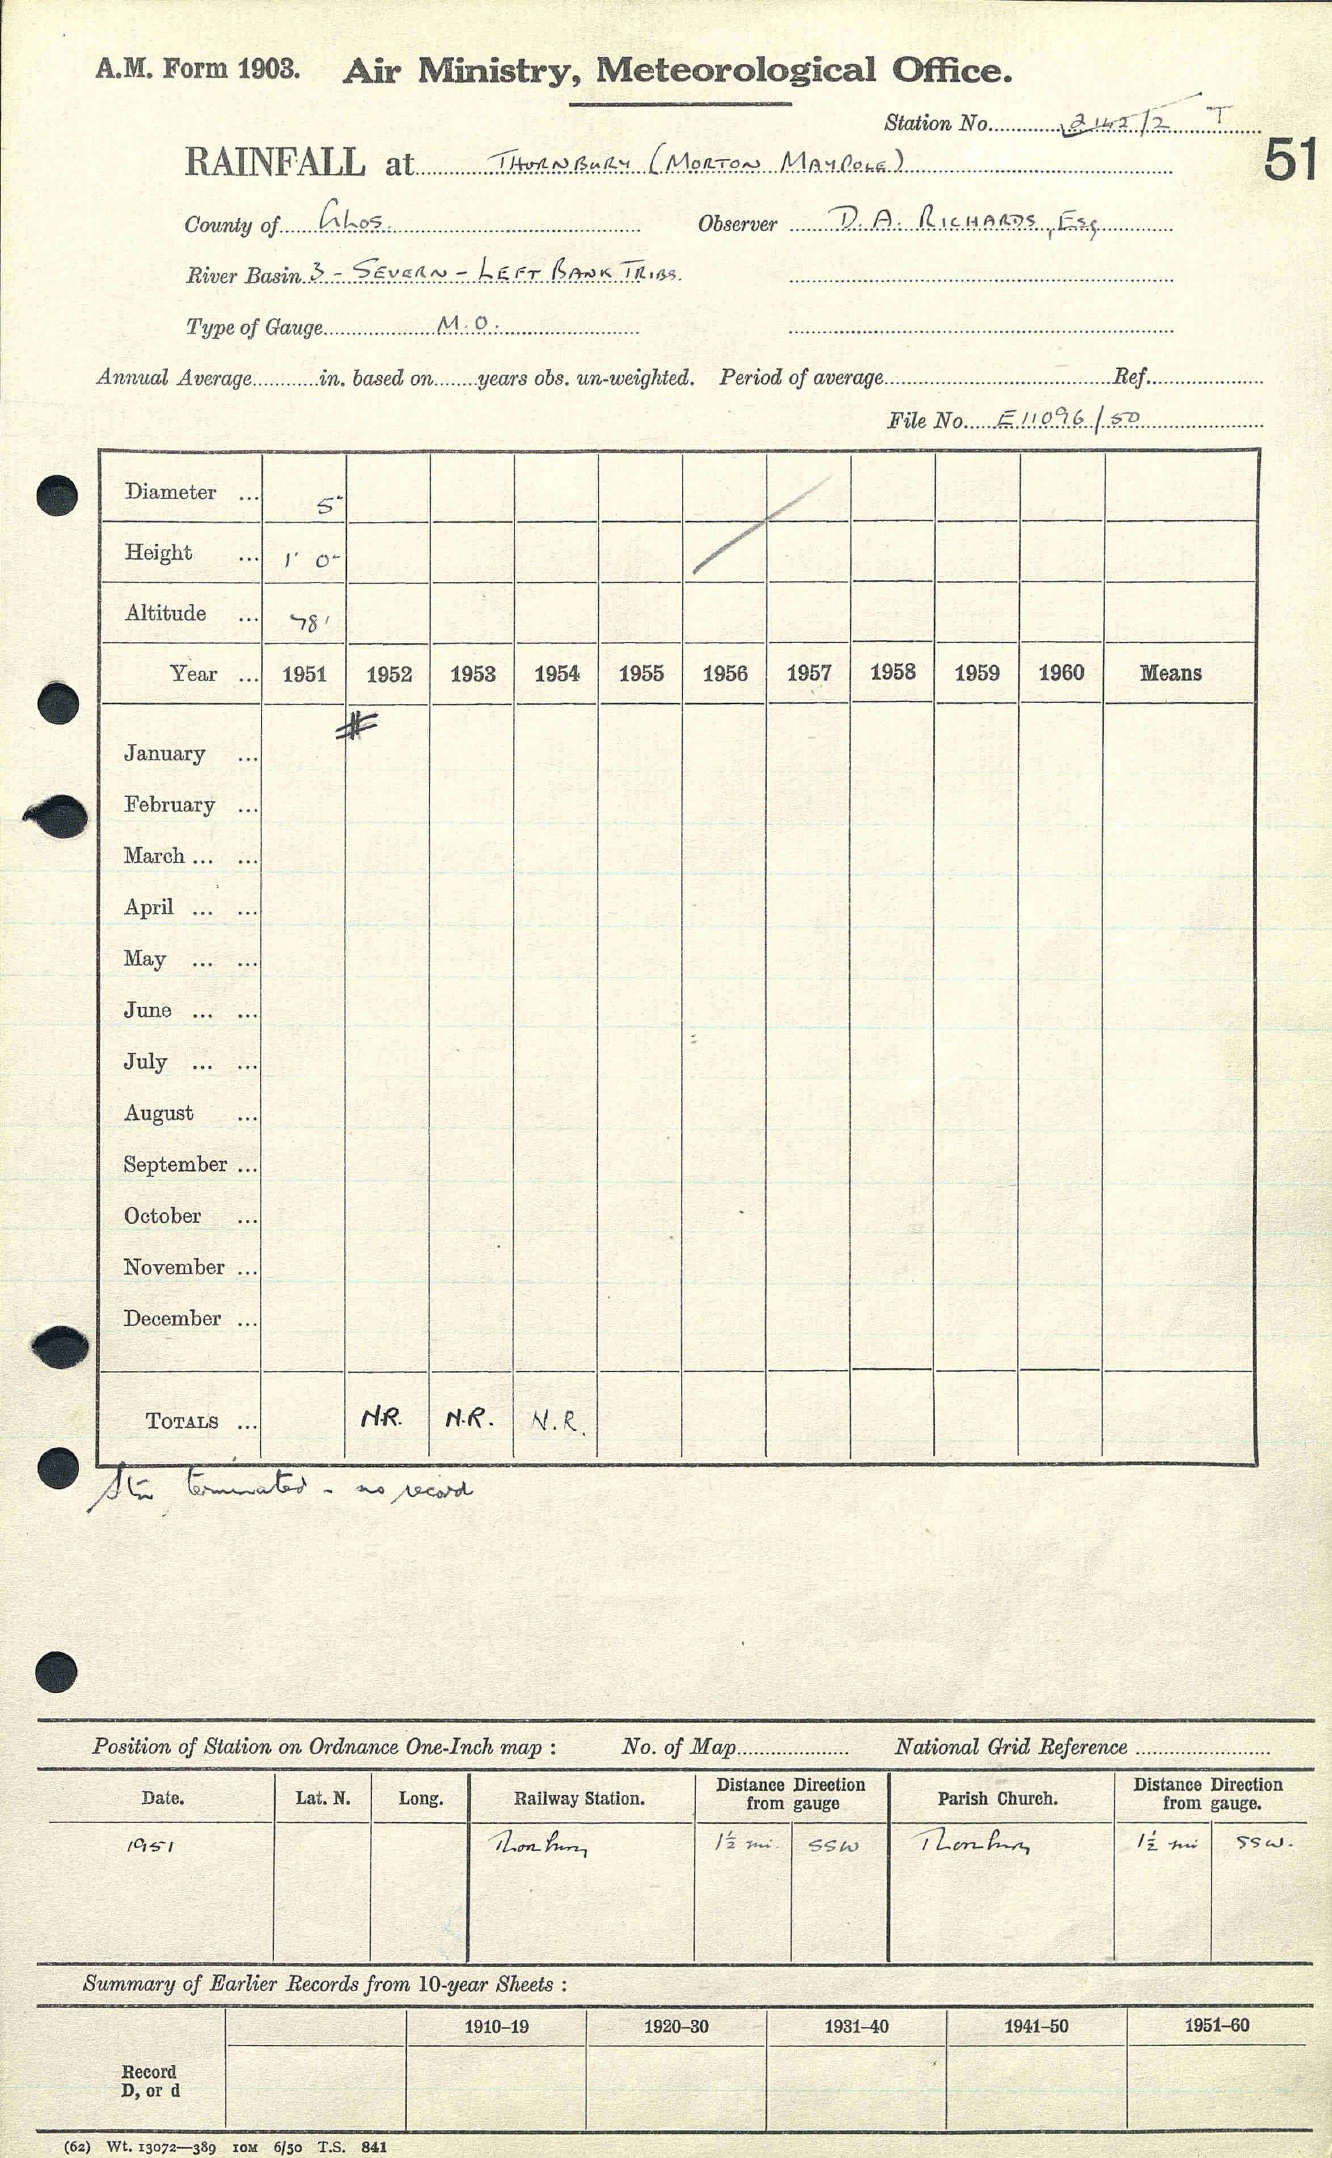 A.M. Form 1903. Air Ministry, Meteorological Office.
Station No. 2142/2 T
RAINFALL at THORNBURY (MORTON MAYPOLE) 51
County of Glos. Observer D. A. RICHARDS, Esq
River Basin 3 - SEVERN - LEFT BANK TRIBS.
Type of Gauge M.O.
Annual Average in. based on years obs. un-weighted. Period of average Ref.
File No. E11096/50
Diameter ... 5"
Height ... 1' 0"
Altitude ... 78'
Year ... 1951 1952 1953 1954 1955 1956 1957 1958 1959 1960 Means
#
January ...
February ...
March ... ...
April ... ...
May ... ...
June ... ...
July ... ...
August ...
September ...
October ...
November ...
December ...
TOTALS ... N.R. N.R. N.R.
Stn terminated - no record
Position of Station on Ordnance One-Inch map : No. of Map National Grid Reference
Date. Lat. N. Long. Railway Station. Distance Direction from gauge Parish Church. Distance Direction from gauge.
1951 Thornbury 1½ mi. SSW Thornbury 1½ mi SSW.
Summary of Earlier Records from 10-year Sheets :
1910–19 1920–30 1931–40 1941–50 1951–60
Record
D, or d
(62) Wt. 13072—389 10M 6/50 T.S. 841